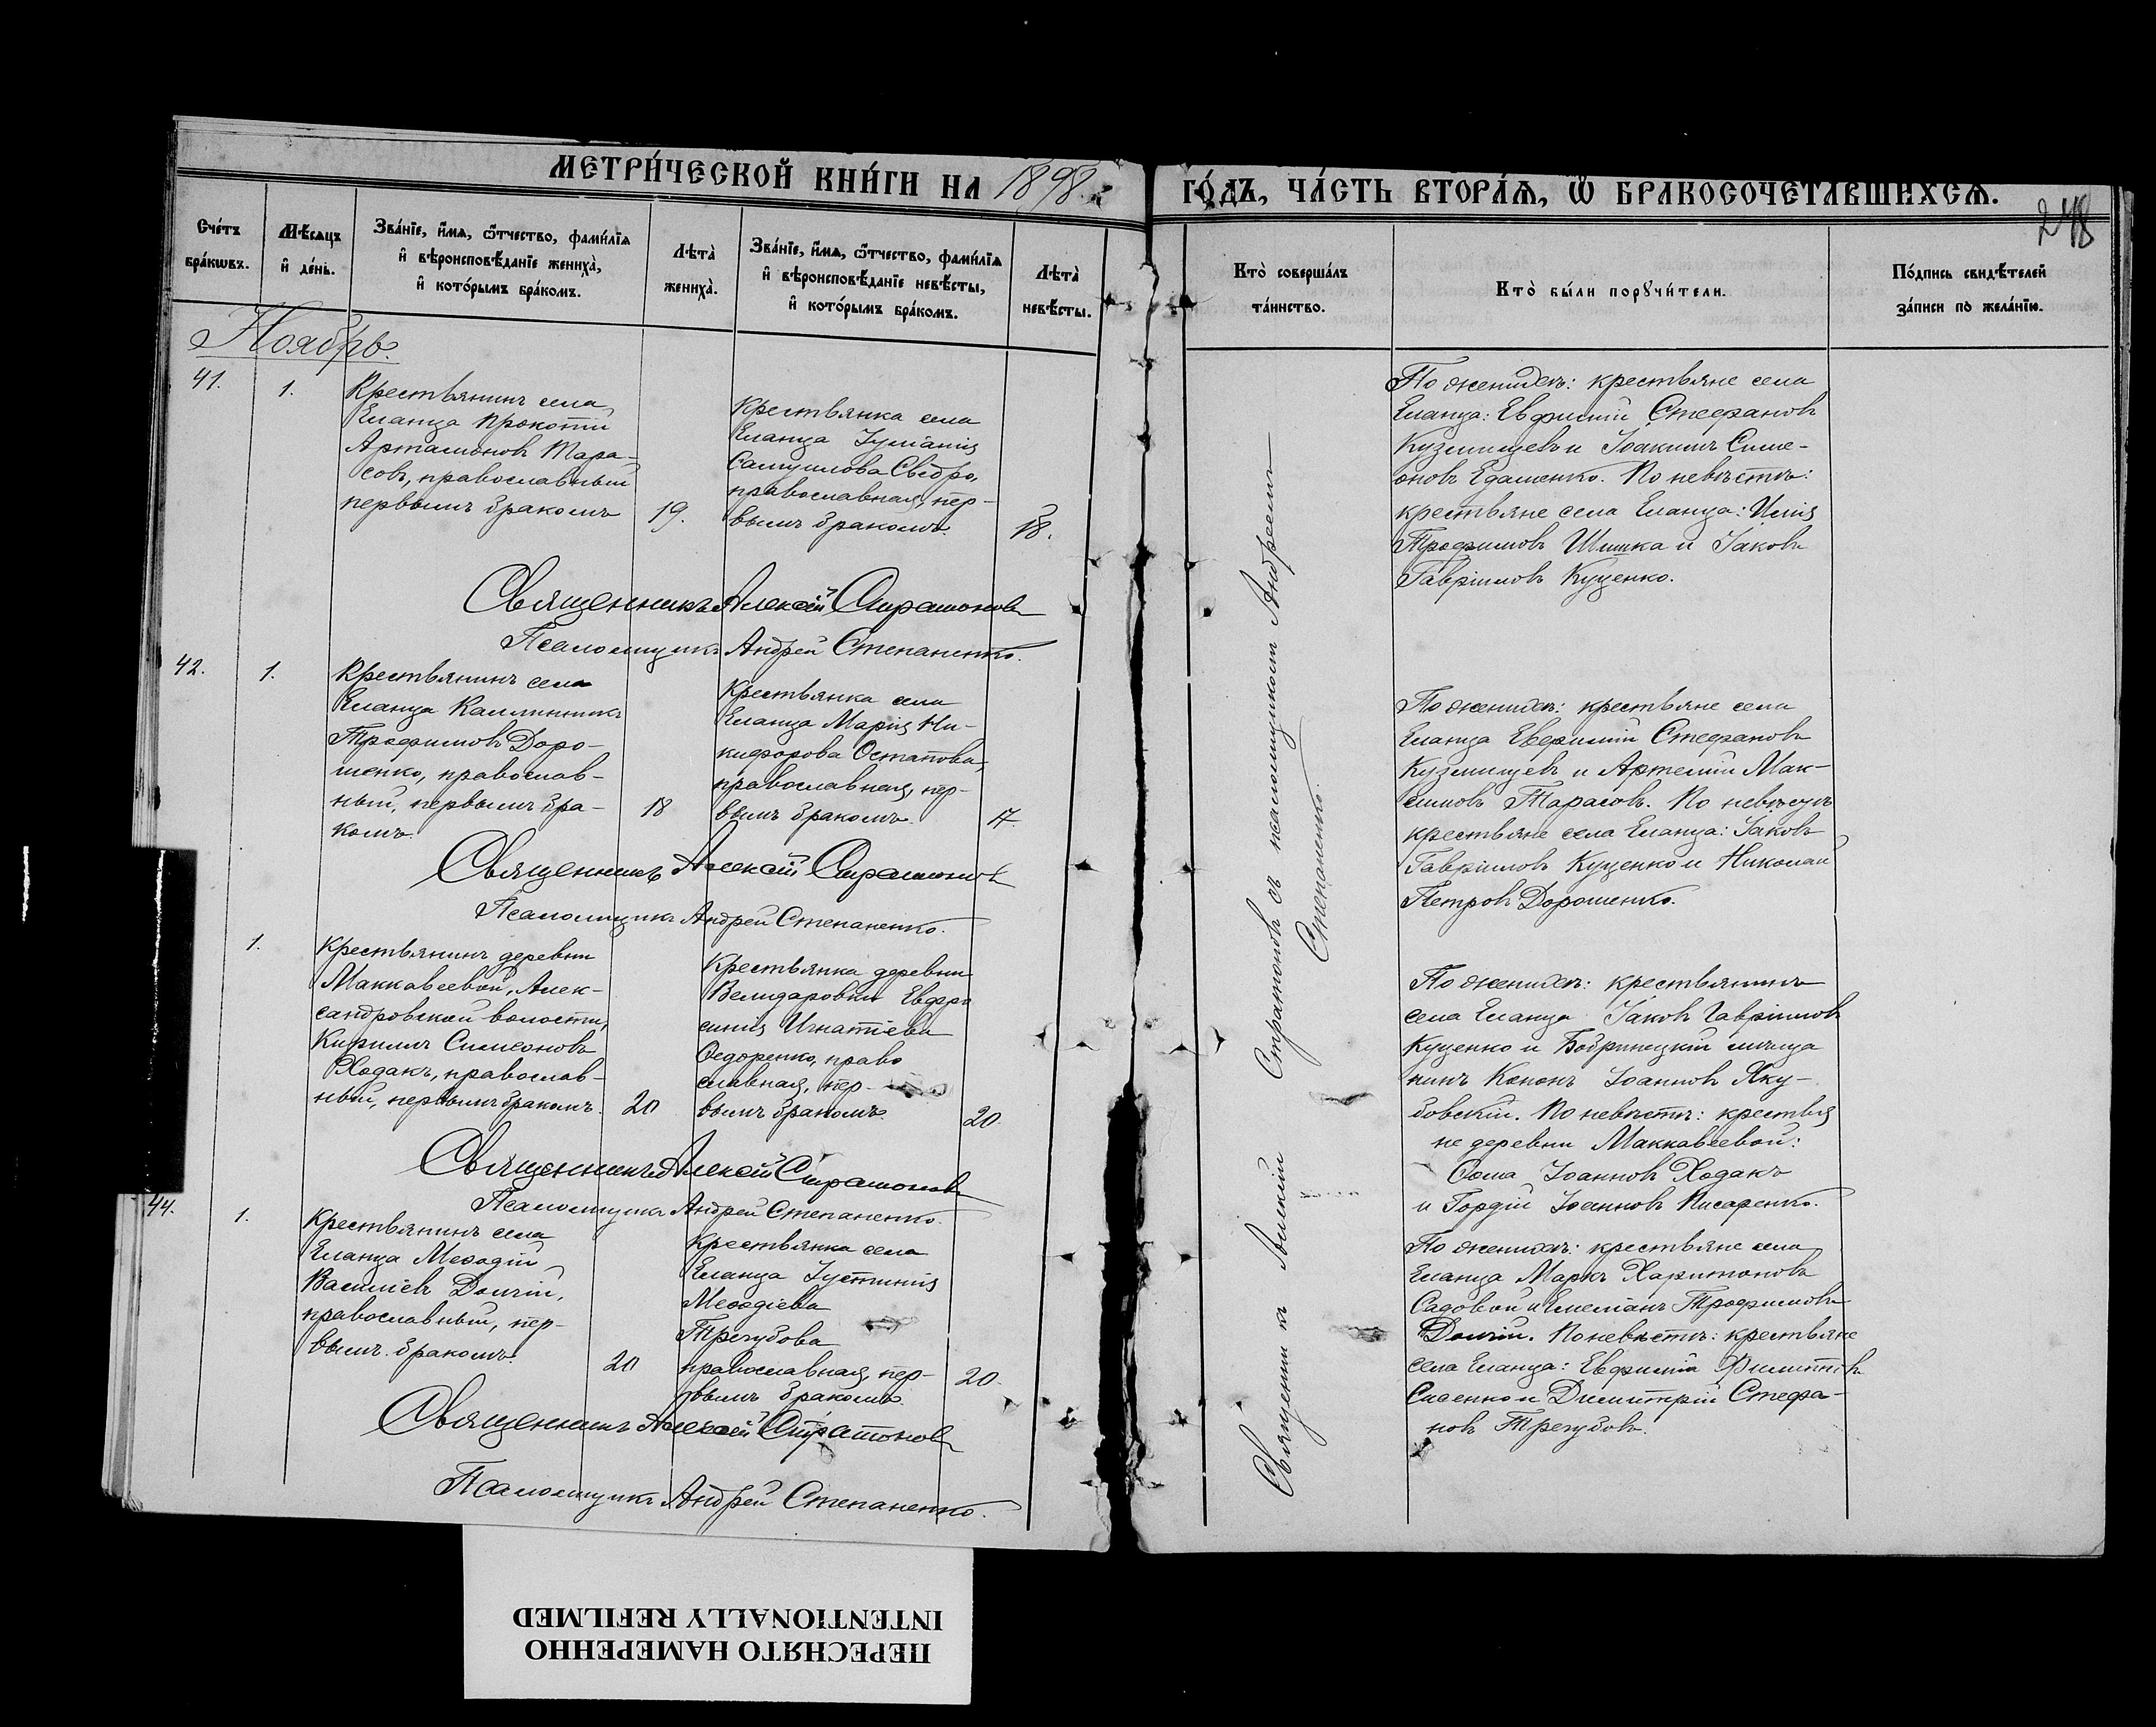 МЕТРИ́ЧЕСКОЙ КНИ́ГИ НА 1898.
ГО́ДЪ, ЧА́СТЬ ВТОРА́Ѧ, Ѿ БРАКОСОЧЕТАВШИХСѦ.
248
Сче́тъ бра́кѡвъ.
Мѣ́сѧцъ и҆ де́нь.
Зва́нїе, и҆́мѧ, ѻ҆́тчество, фами́лїѧ и҆ вѣроисповѣ́данїе жениха̀, и҆ кото́рымъ бра́комъ.
Лѣта̀ жениха̀.
Зва́нїе, и҆́мѧ, ѻ҆́тчество, фами́лїѧ и҆ вѣроисповѣ́данїе невѣ́сты, и҆ кото́рымъ бра́комъ.
Лѣта̀ невѣ́сты.
Кто̀ соверша́лъ та́инство.
Кто̀ бы́ли порꙋчи́тели.
По́дпись свидѣ́телей за́писи по жела́нїю.
Ноябрь.
41.
1.
Крестьянинъ села
Еланца Прокопій
Артамоновъ Тара-
совъ, православный
первымъ бракомъ
19.
Крестьянка села
Еланца Іуліанія
Самуилова Свѣдро,
православная, пер-
вымъ бракомъ.
18.
По женихѣ: крестьяне села
Еланца: Евфимій Стефановъ
Кузминцевъ и Іоакимъ Симе-
оновъ Едаменко. По невѣстѣ:
крестьяне села Еланца: Илія
Трофимовъ Шишка и Іаковъ
Гавріиловъ Куценко.
Священникъ Алексій Стратоновъ
Псаломщикъ Андрей Степаненко.
42.
1.
Крестьянинъ села
Еланца Каллинникъ
Трофимовъ Доро-
шенко, православ-
ный, первымъ бра-
комъ.
18
Крестьянка села
Еланца Марія Ни-
кифорова Остапова,
православная, пер-
вымъ бракомъ.
17.
По женихѣ: крестьяне села
Еланца Евфимій Стефановъ
Кузминцевъ и Артемій Мак-
симовъ Тарасовъ. По невѣстѣ
крестьяне села Еланца: Іаковъ
Гавріиловъ Куценко и Николай
Петровъ Дорошенко.
Священникъ Алексій Стратоновъ
Псаломщикъ Андрей Степаненко.
1.
Крестьянинъ деревни
Маккавеевой, Алек-
сандровской волости,
Кириллъ Симеоновъ
Ходакъ, православ-
ный, первымъ бракомъ.
20
Крестьянка деревни
Велидаровки Евфро
синія Игнатіева
Ѳедоренко, право
славная, пер-
вымъ бракомъ.
20.
По женихѣ: крестьянинъ
села Еланца Іаковъ Гавріиловъ
Куценко и Бобринецкій мѣща
нинъ Кононъ Іоанновъ Яку-
бовскій. По невѣстѣ: крестья
не деревни Маккавеевой:
Ѳома Іоанновъ Ходакъ
и Гордій Іоанновъ Писаренко.
Священникъ Алексій Стратоновъ
Псаломщикъ Андрей Степаненко.
44.
1.
Крестьянинъ села
Еланца Меѳодій
Василіевъ Долгій,
православный, пер-
вымъ бракомъ.
20
Крестьянка села
Еланца Іустинія
Меѳодіева
Трегубова
православная, пер-
вымъ бракомъ.
20.
По женихѣ: крестьяне села
Еланца Маркъ Харитоновъ
Садовой и Емеліанъ Трофимовъ
Долгій. По невѣстѣ: крестьяне
села Еланца: Евфимій Филипповъ
и Димитрій Стефа-
новъ Трегубовъ.
Священникъ Алексій Стратоновъ
Псаломщикъ Андрей Степаненко.
Священникъ Алексій Стратоновъ съ псаломщикомъ Андреемъ
Степаненко.
ПЕРЕСНЯТО НАМЕРЕННО
INTENTIONALLY REFILMED